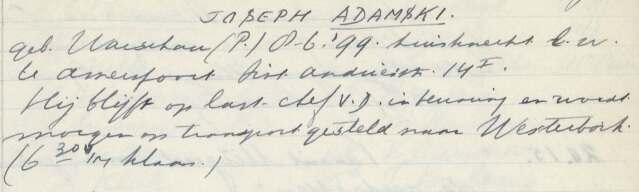 JOSEPH ADAMSKI.
geb. Warschau (P.) 8-6-'99. huisknecht l.w.
te Amersfoort St. Andriesstr. 14 I.
Hij blijft op last chef V.D. in bewaring en wordt
morgen op transport gesteld naar Westerbork.
(6 30 v/m klaar.)